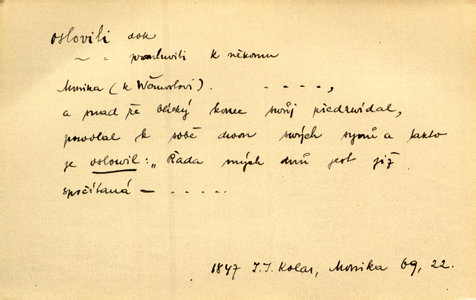 osloviti dok
~ ~ promluviti k někomu
Monika (k Věnuslovi). . . . . . ,
a snad že blízký konec svůj předzvídal,
povolal k sobě dvou svých synů a takto
je oslowil: „Řada mých dnů jest již
sečítaná — . . . . .
1847 J. J. Kolar, Monika 69, 22.